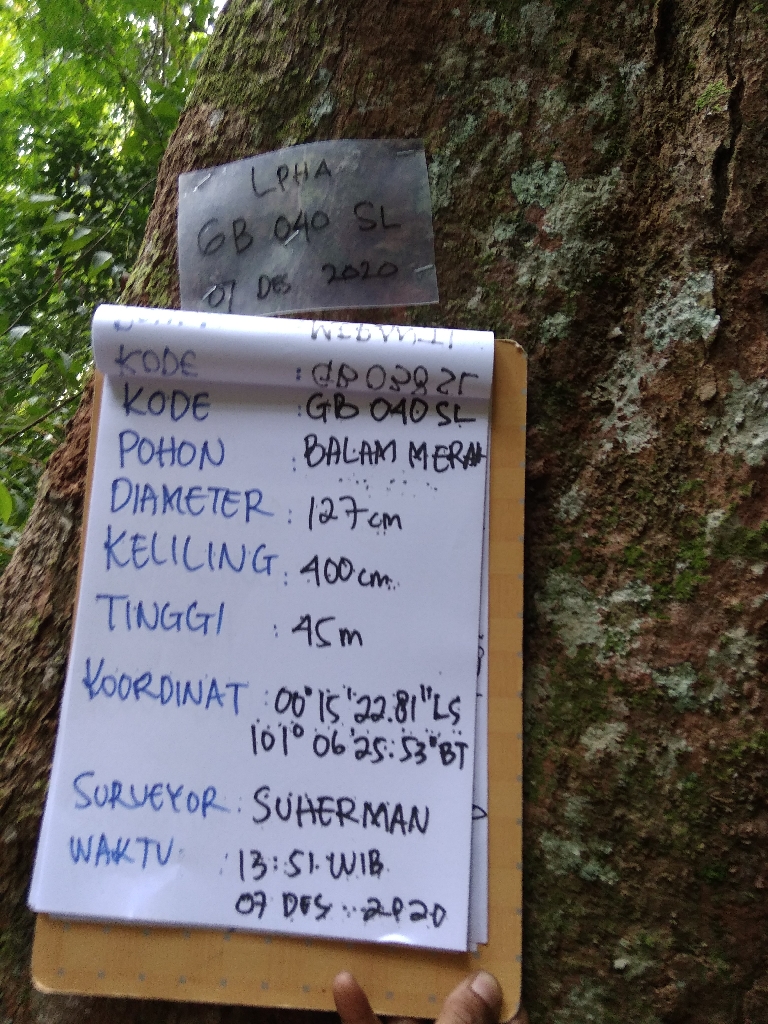 LPHA
GB 040 SL
07 DES 2020
KODE :
KODE : GB 040 SL
POHON : BALAM MERAH
DIAMETER : 127 cm
KELILING : 400 cm
TINGGI : 45 m
KOORDINAT : 00° 15' 22.81" LS
101° 06' 25:53" BT
SURVEYOR : SUHERMAN
WAKTU : 13:51 WIB
07 DES 2020